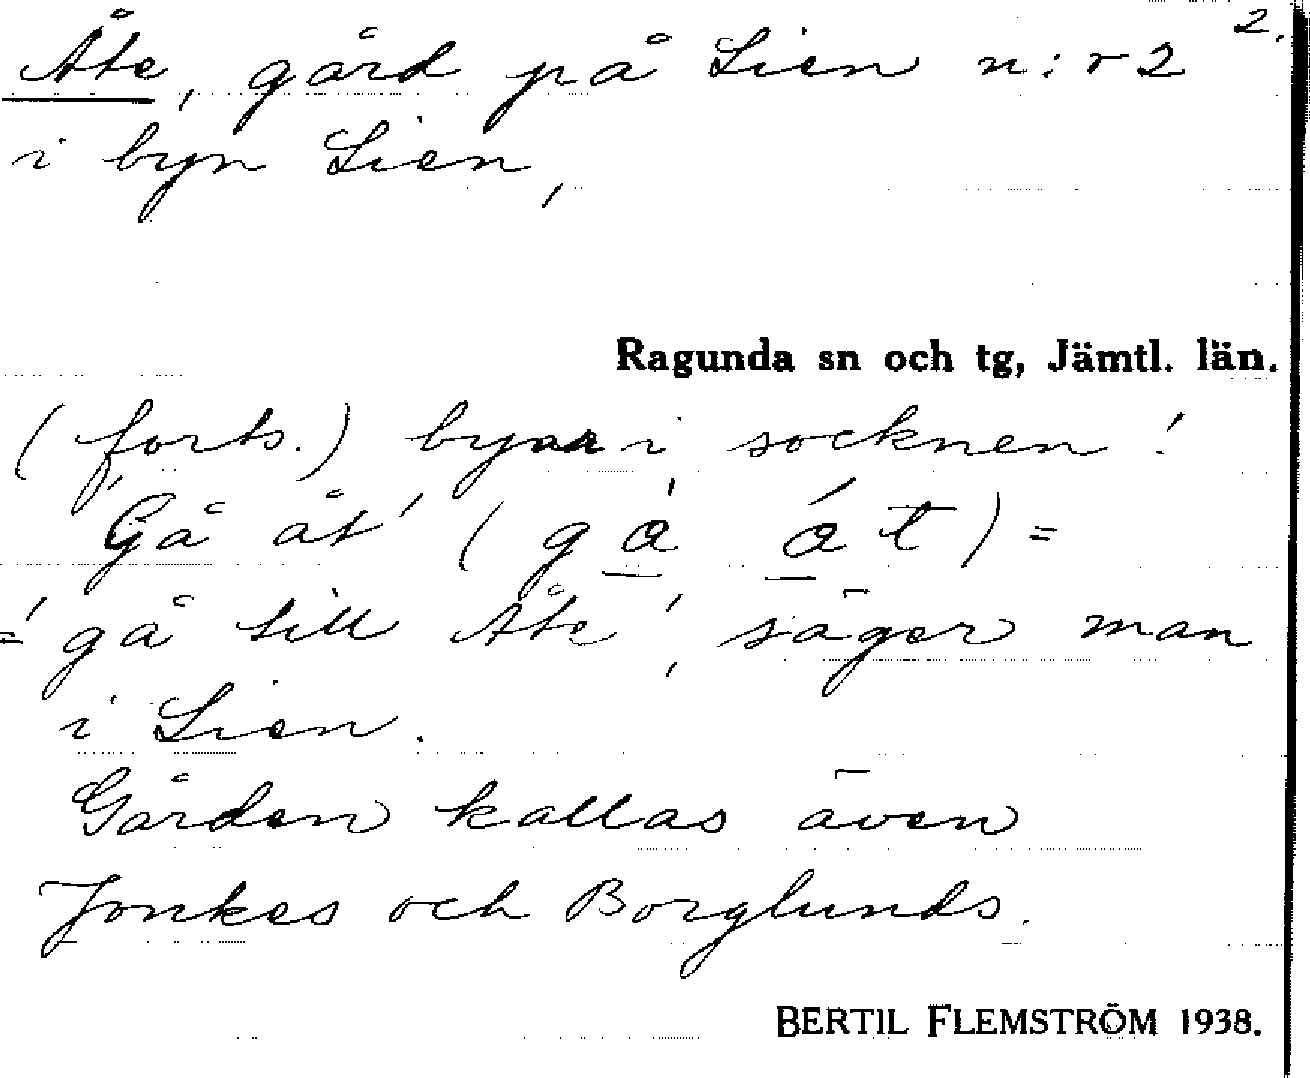 2.
Åte, gård på Lien n:r 2
i byn Lien,
Ragunda sn och tg, Jämtl. län.
(forts.) byar i socknen!
'Gå åt' (gǻ ǻt) =
='gå till Åte', säger man
i Lien.
Gården kallas även
Jonkes och Borglunds.
BERTIL FLEMSTRÖM 1938.